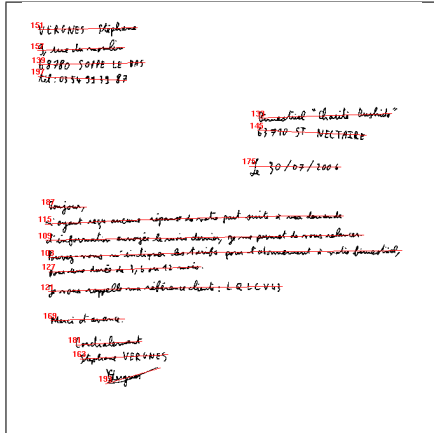 VERGNES Stéphane
4 rue du moulin
68780 SOPPE LE BAS
tel: 0354993987
Bimestriel "Charlie Bushido"
63710 ST NECTAIRE
Le 30/07/2006
Bonjour,
N'ayant reçu aucune réponse de votre part suite à ma demande
d'information envoyée le mois dernier, je me permet de vous relancer
Pouvez vous m'indiquer les tarifs pour l'abonnement à votre bimestriel,
Pour une durée de 3, 6 ou 12 mois.
Je vous rappelle ma référence client:
Merci d'avance.
Cordialement
Stéphane VERGNES
Vergnes